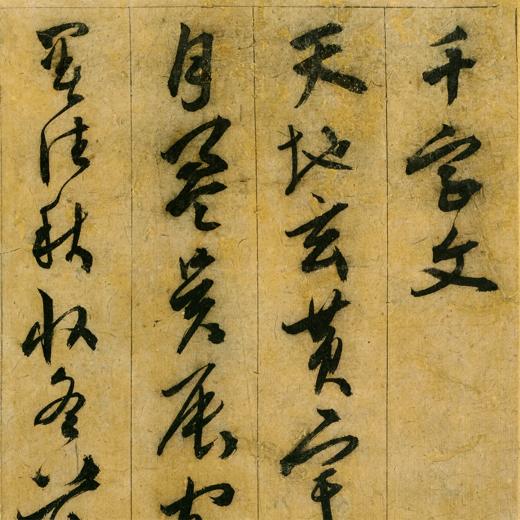 千字文
天地玄黄宇
月盈昃辰
暑往秋收冬